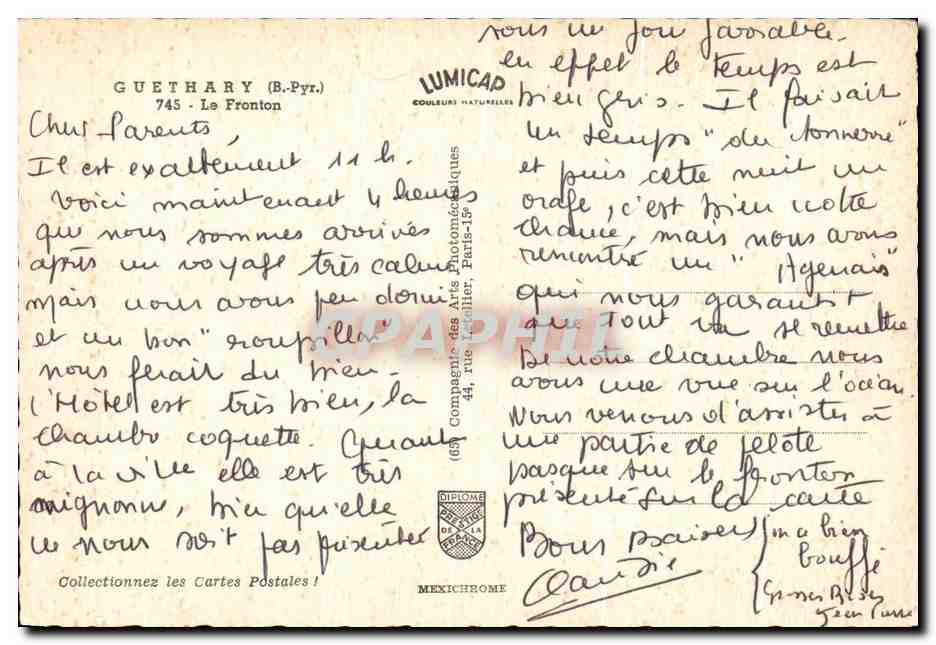 GUETHARY (B.-Pyr.)
745 - Le Fronton
LUMICAP
COULEURS NATURELLES
Chers Parents,
Il est exactement 11 h.
Voici maintenant 4 heures
que nous sommes arrivés
après un voyage très calme
mais nous avons peu dormi
et un bon "roupillon"
nous ferait du bien -
L'Hôtel est très bien, la
chambre coquette. Quant
à la ville elle est très
mignonne, bien qu'elle
ne nous soit pas présentée
sous un jour favorable.
en effet le temps est
bien gris. Il faisait
un temps "du tonnerre"
et puis cette nuit un
orage, c'est bien notre
chance, mais nous avons
rencontré un "Agenais"
qui nous garantit
que tout va se remettre
De notre chambre nous
avons une vue sur l'océan.
Nous venons d'assister à
une partie de pelote
basque sur le fronton
présenté sur la carte
Bons baisers
Claudie
on a bien
bouffé
Grosses Bises
Jean Pierre
(65) Compagnie des Arts Photomécaniques
44, rue Letellier, Paris-15e
DIPLOME
PRESTIGE
DE LA
FRANCE
Collectionnez les Cartes Postales !
MEXICHROME
CPAPHIL